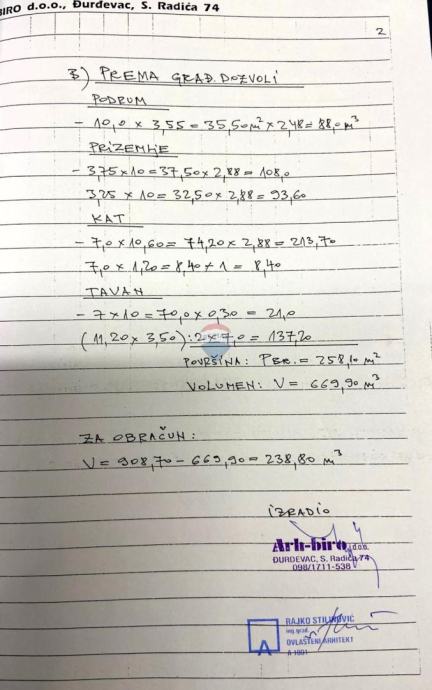 BIRO d.o.o., Đurđevac, S. Radića 74
2
3) PREMA GRAD. DOZVOLI
PODRUM
- 10,0 x 3,55 = 35,50 m² x 2,48 = 88,0 m³
PRIZEMLJE
- 3,75 x 10 = 37,50 x 2,88 = 108,0
3,25 x 10 = 32,50 x 2,88 = 93,60
KAT
- 7,0 x 10,60 = 74,20 x 2,88 = 213,70
7,0 x 1,20 = 8,40 x 1 = 8,40
TAVAN
- 7 x 10 = 70,0 x 0,30 = 21,0
(11,20 x 3,50) : 2 x 7,0 = 137,20
POVRŠINA: PBR. = 258,10 m²
VOLUMEN: V = 669,90 m³
ZA OBRAČUN:
V = 908,70 - 669,90 = 238,80 m³
IZRADIO
Arh-biro d.o.o.
ĐURĐEVAC, S. Radića 74
098/1711-536
RAJKO STILINOVIĆ
ing.građ.
OVLAŠTENI ARHITEKT
A 1001
A